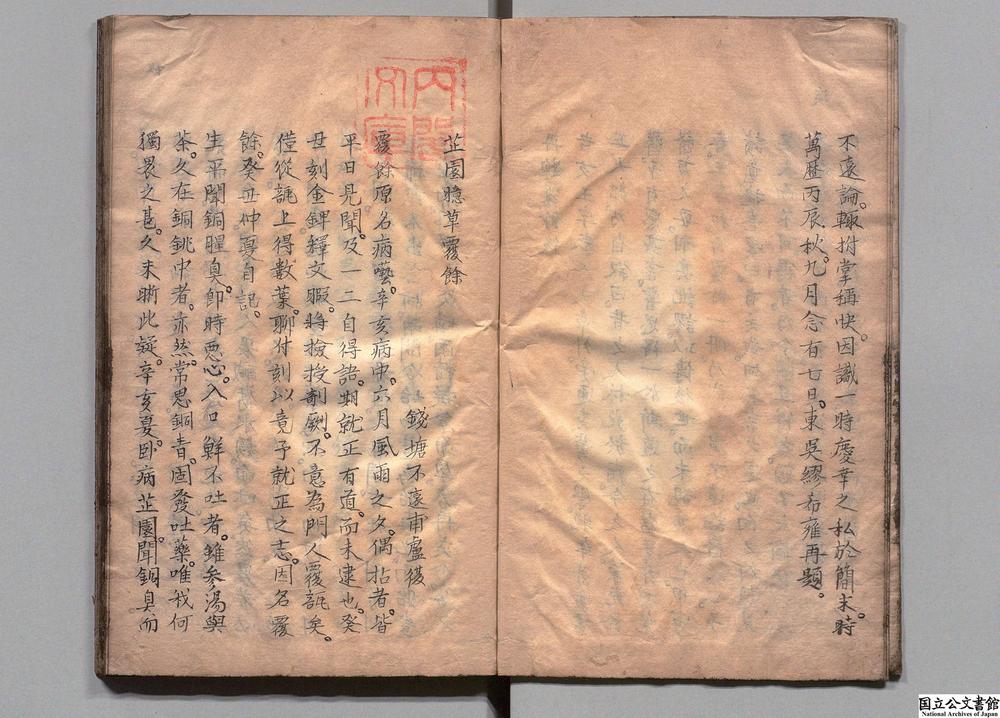 不遠論。輙拊掌稱快。因識一時慶幸之私於簡末。時
萬曆丙辰秋。九月念有七日。東吳繆希雍再題。
芷園臆草覆餘
錢塘不遠甫盧復
覆餘原名病囈。辛亥病中。六月風雨之夕。偶拈者。皆
平日見聞。及一二自得語。期就正有道。而未逮也。癸
丑刻金錍釋文暇。將檢授剞劂。不意為門人覆瓿矣。
僅從瓿上得數葉。聊付刻以竟予就正之志。因名覆
餘。癸丑仲夏自記。
生平聞銅腥臭。即時惡心。入口鮮不吐者。雖參湯與
茶。久在銅銚中者。亦然。常思銅青。固發吐藥。唯我何
獨畏之甚。久未晰此疑。辛亥夏。卧病芷園。聞銅臭而
内閣文庫
国立公文書館
National Archives of Japan